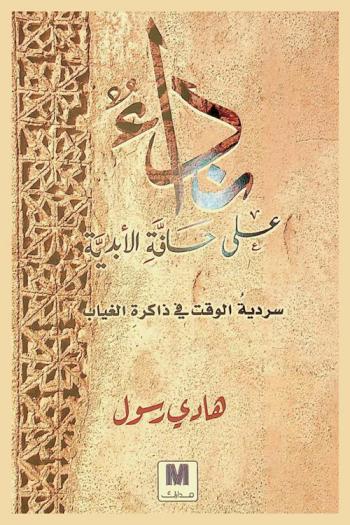 نداءٌ
على حافَّةِ الأبديّة
سرديةُ الوقت في ذاكرةِ الغياب
هادي رسول
M
مدارك